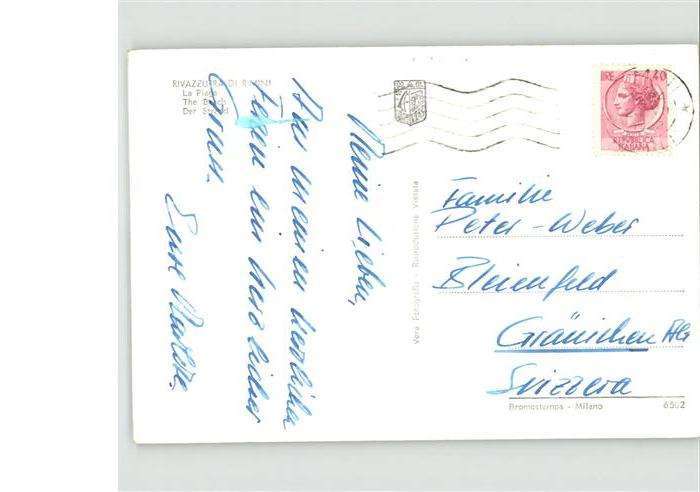 RIVAZZURRA DI RIMINI
La Plage
The Beach
Der Strand
Meine Lieben,
Aus meinen herrlichen
Tagen ein herzlicher
Gruss.
Eure
Vera Fotografia - Riproduzione Vietata
LIRE 40
REPUBBLICA
ITALIANA
Familie
Peter-Weber
Bleienfeld
Gränichen AG
Svizzera
Bromostampa - Milano 6502